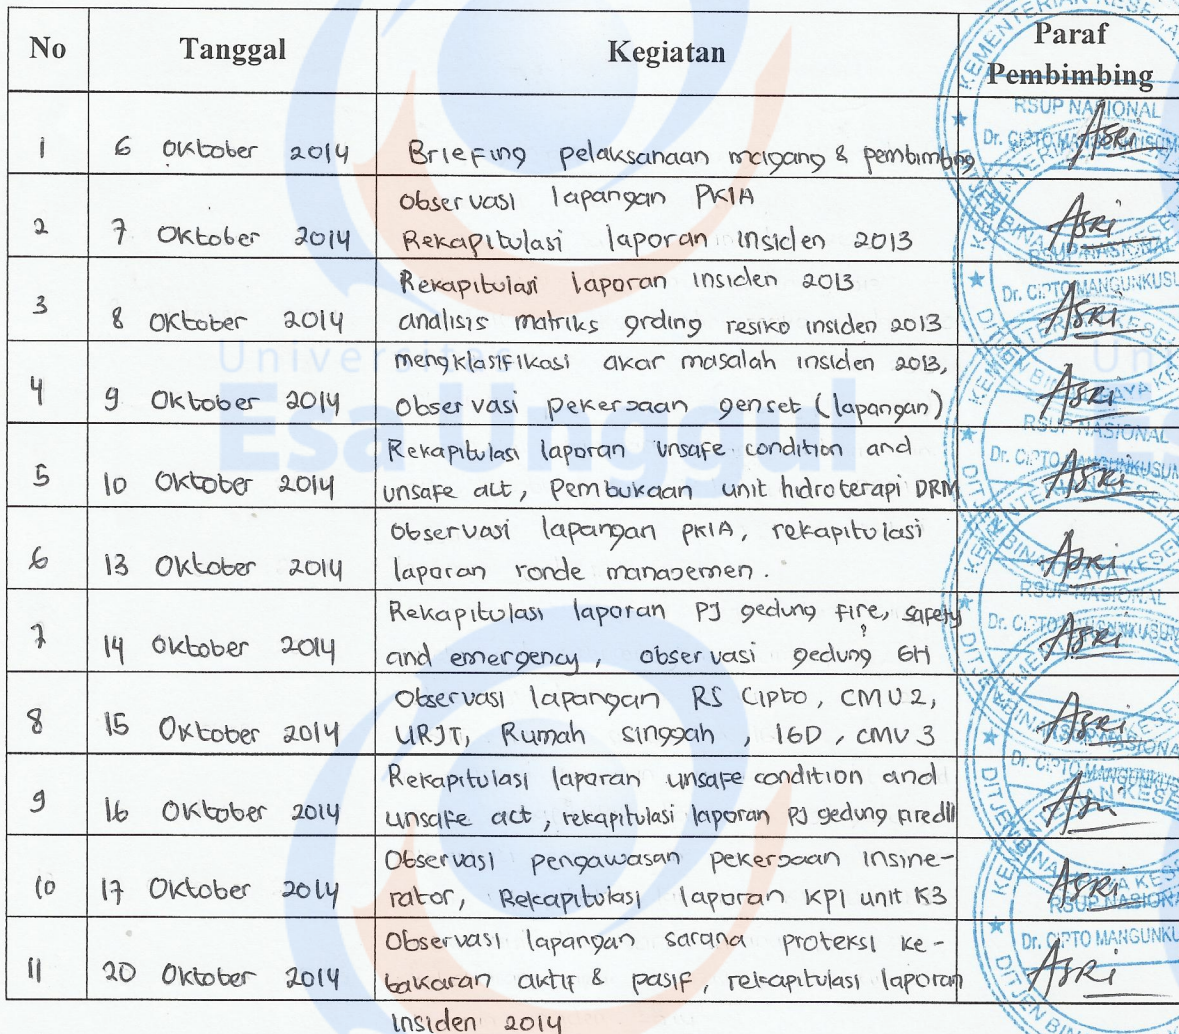 No Tanggal Kegiatan Paraf
Pembimbing
1 6 Oktober 2014 Briefing pelaksanaan magang & pembimbing Asri
2 7 Oktober 2014 Observasi lapangan PKIA
Rekapitulasi laporan insiden 2013 Asri
3 8 Oktober 2014 Rekapitulasi laporan insiden 2013
analisis matriks grding resiko insiden 2013 Asri
4 9 Oktober 2014 mengklasifikasi akar masalah insiden 2013,
Observasi pekerjaan genset (lapangan) Asri
5 10 Oktober 2014 Rekapitulasi laporan unsafe condition and
unsafe act, Pembukaan unit hidroterapi DRM Asri
6 13 Oktober 2014 Observasi lapangan PKIA, rekapitulasi
laporan ronde manajemen. Asri
7 14 Oktober 2014 Rekapitulasi laporan PJ gedung fire, safety
and emergency, observasi gedung GH Asri
8 15 Oktober 2014 Observasi lapangan RS Cipto, CMU 2,
URJT, Rumah singgah, IGD, CMU 3 Asri
9 16 Oktober 2014 Rekapitulasi laporan unsafe condition and
unsafe act, rekapitulasi laporan PJ gedung fire dll
10 17 Oktober 2014 Observasi pengawasan pekerjaan insine-
rator, Rekapitulasi laporan KPI unit K3 Asri
11 20 Oktober 2014 Observasi lapangan sarana proteksi ke-
bakaran aktif & pasif, rekapitulasi laporan Asri
insiden 2014
Universitas
Esa Unggul
RSUP NASIONAL
Dr. CIPTO MANGUNKUSUMO